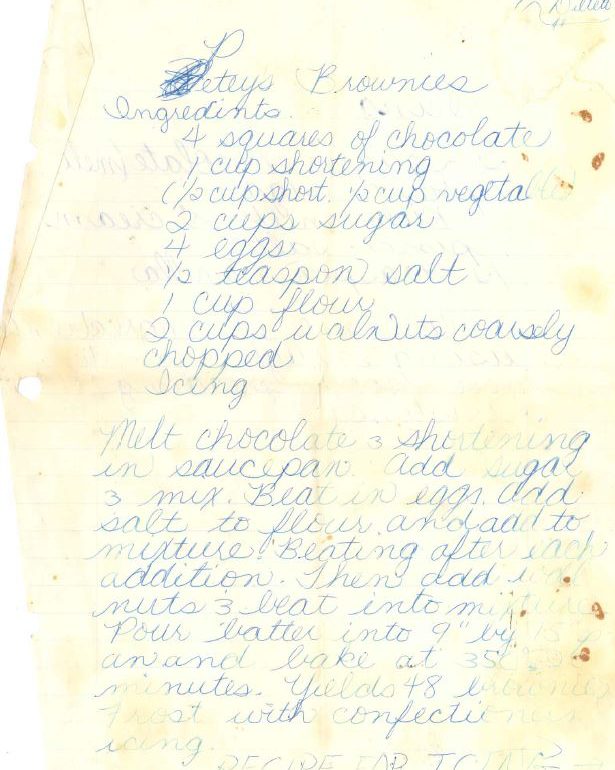 P
eteys Brownies
Ingredints.
4 squares of chocolate
1 cup shortening
(1/2 cup short. 1/2 cup vegetable)
2 cups sugar
4 eggs
1/2 teaspon salt
1 cup flour
2 cups walnuts coarsely
chopped
Icing
Melt chocolate & shortening
in saucepan. Add sugar
& mix. Beat in eggs. Add
salt to flour and add to
mixture. Beating after each
addition. Then add wal
nuts & beat into mixture
Pour batter into 9" by 15" p
an and bake at 350
minutes. Yields 48 brownies
Frost with confectioners
icing.
RECIPE FOR ICING →